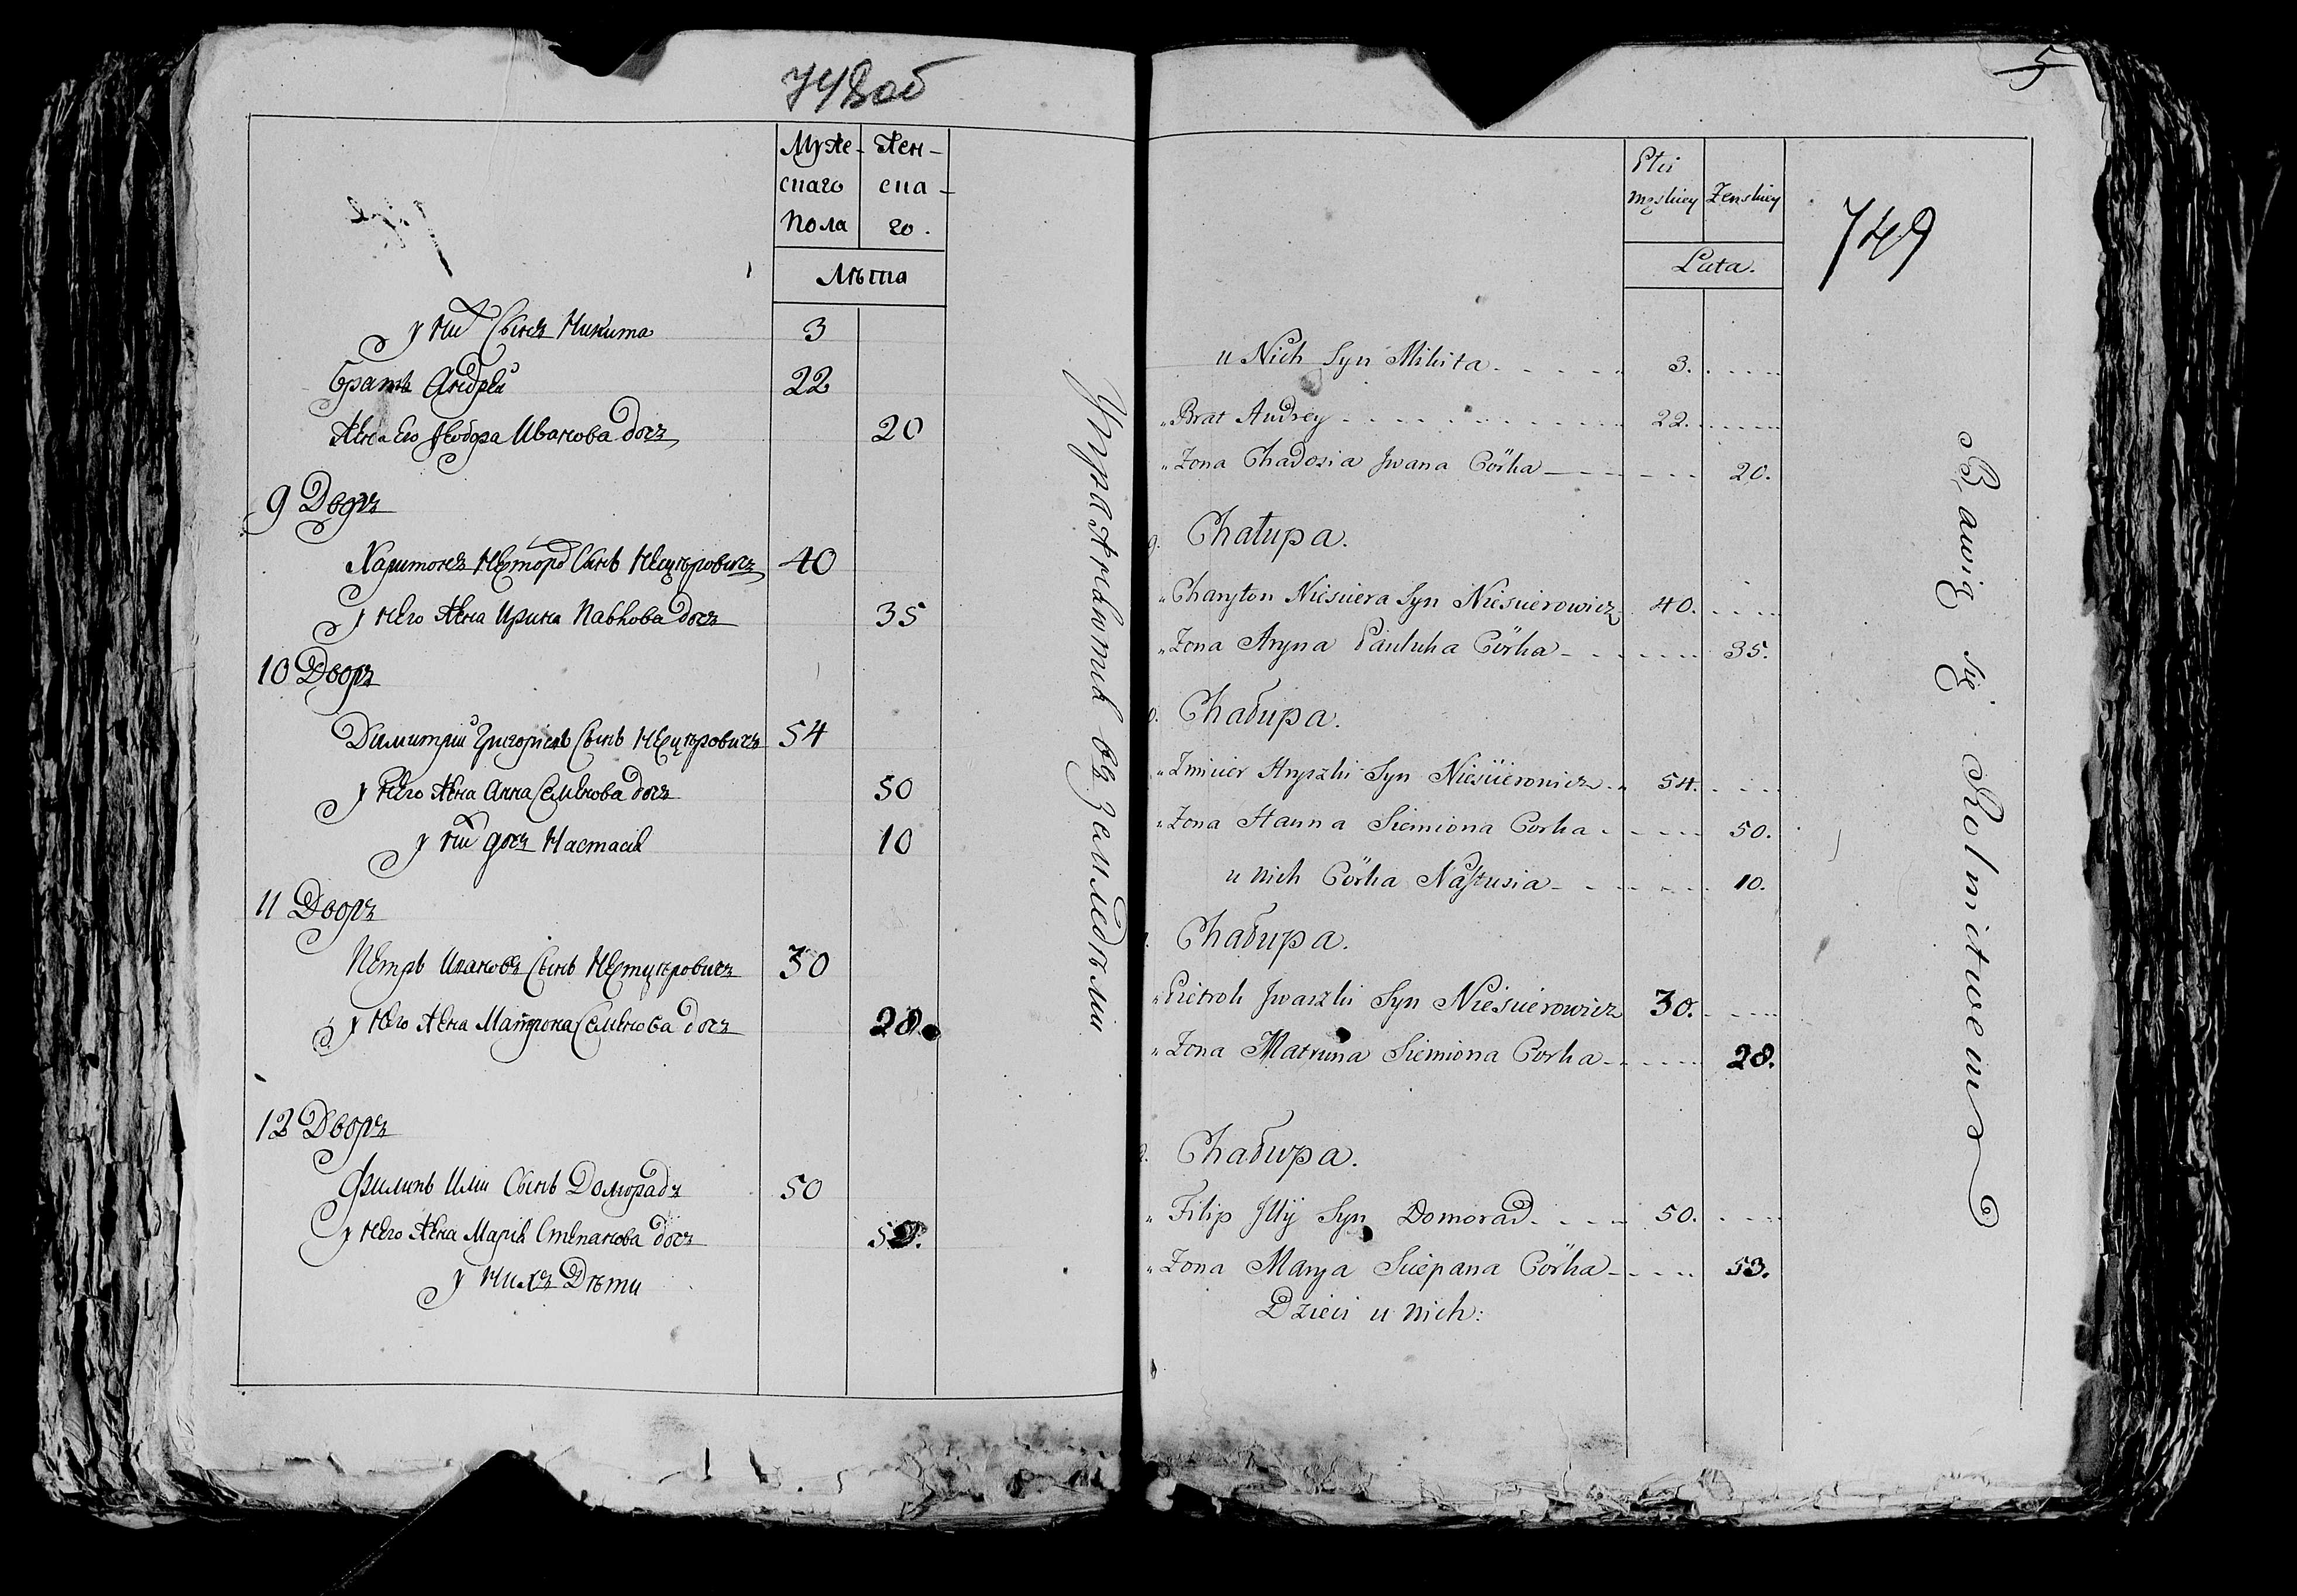 748об
Муже- Жен-
скаго ска-
Пола го.
Лѣта
у них Сынъ Никита 3
Братъ Андрей 22
Жена Его Ѳеодора Иванова дочь 20
9 Дворъ
Харитонъ Сынъ 40
у Него Жена Ирина Павлова дочь 35
10 Дворъ
Димитрий Григориевъ Сынъ 54
у Него Жена Анна Семенова дочь 50
у них дочь Настасія 10
11 Дворъ
Петръ Ивановъ Сынъ 30
у Него Жена Матрона Семенова дочь 28.
12 Дворъ
Филипъ Илии Сынъ Доморадъ 50
у Него Жена Марія Степанова дочь
у нихъ Дѣти
Упражняются въ Земледѣлии
5
749
Płci
Męskiey Żenskiey
Lata.
u Nich Syn Mikita 3.
Brat Andrey 22.
Zona Chadosia Jwana Córka 20.
9. Chałupa.
Charyton Niesciera Syn Niescierowicz 40.
Zona Aryna Pauluka Córka 35.
Chałupa.
Zmicier Hryszki Syn Niescierowicz 54.
Zona Hanna Siemiona Corka 50.
u nich Córka Nastusia 10.
Chałupa.
Pietroh Jwaszki Syn Niescierowicz 30.
Zona Matruna Siemiona Corka 28.
Chałupa.
Filip Jllÿ Syn Domorad 50.
Zona Marya Sciepana Córka 53.
Dzieci u nich:
Bawią się Rolnictwem